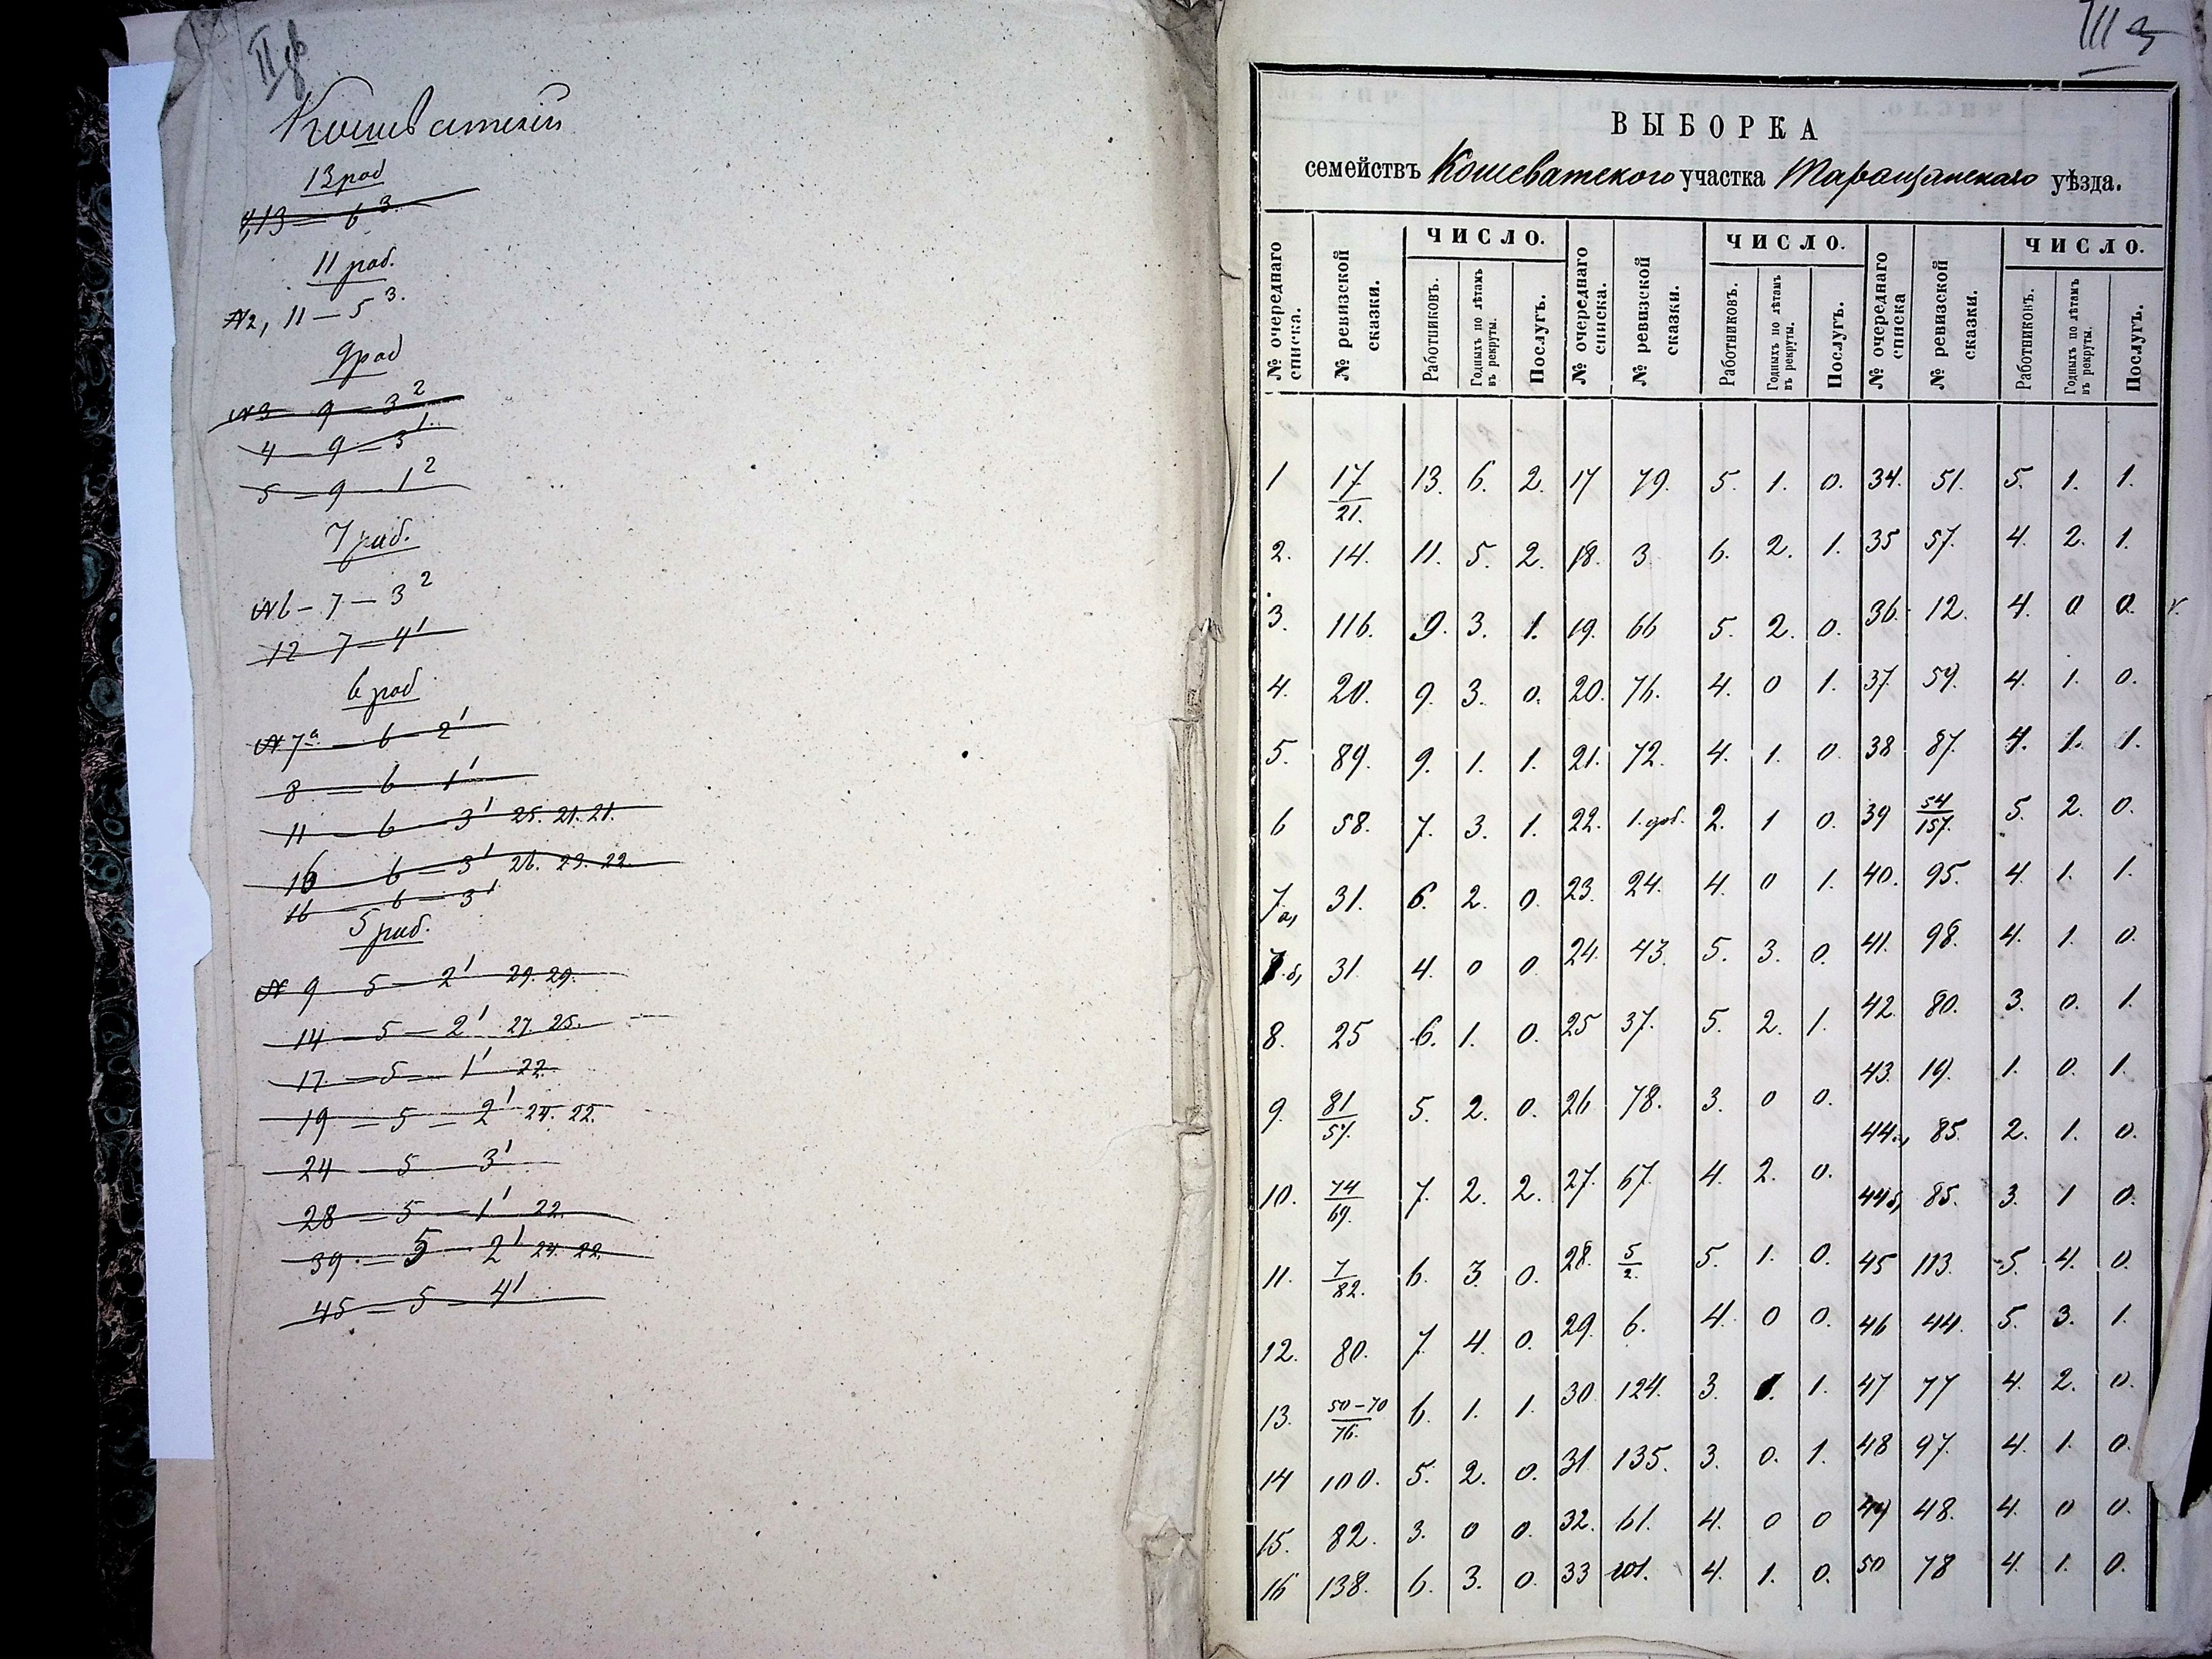 II
Кошеватский
13 раб
4,13 — 6 3.
11 раб.
№2, 11 — 5 3.
9 раб
№3 — 9 — 3 2
4 — 9 — 3 1.
5 — 9 — 1 2
7 раб.
№6 — 7 — 3 2
12 — 7 — 4 1
6 раб
№7а — 6 — 2 1
8 — 6 — 1 1
11 — 6 — 3 1 25. 21. 21.
16 — 6 — 3 1 26. 23. 22.
16 — 6 — 3 1
5 раб.
№ 9 — 5 — 2 1 29. 29.
14 — 5 — 2 1 27. 25.
17 — 5 — 1 1 22.
19 — 5 — 2 1 24. 22.
24 — 5 — 3 1
28 — 5 — 1 1 22.
39 — 5 — 2 1 24. 22.
45 — 5 — 4 1
III 3
ВЫБОРКА
семействъ Кошеватского участка Таращанскаго уѣзда.
№ очереднаго списка. № ревизской сказки. ЧИСЛО. Работниковъ. Годныхъ по лѣтамъ въ рекруты. Послугъ. № очереднаго списка. № ревизской сказки. ЧИСЛО. Работниковъ. Годныхъ по лѣтамъ въ рекруты. Послугъ. № очереднаго списка № ревизской сказки. ЧИСЛО. Работниковъ. Годныхъ по лѣтамъ въ рекруты. Послугъ.
1 17/21. 13. 6. 2. 17 79. 5. 1. 0. 34. 51. 5. 1. 1.
2. 14. 11. 5. 2. 18. 3. 6. 2. 1. 35 57. 4. 2. 1.
3. 116. 9. 3. 1. 19. 66 5. 2. 0. 36. 12. 4. 0 0. v.
4. 20. 9. 3. 0. 20. 76. 4. 0 1. 37. 59. 4. 1. 0.
5. 89. 9. 1. 1. 21. 72. 4. 1. 0. 38 87. 4. 1. 1.
6 58. 7. 3. 1. 22. 1. 2. 1 0. 39 54/157. 5. 2. 0.
7.а, 31. 6. 2. 0. 23. 24. 4. 0 1. 40. 95. 4. 1. 1.
7.б, 31. 4. 0 0. 24. 43. 5. 3. 0. 41. 98. 4. 1. 0.
8. 25 6. 1. 0. 25 37. 5. 2. 1. 42. 80. 3. 0. 1.
43. 19. 1. 0. 1.
9. 81/57. 5. 2. 0. 26 78. 3. 0 0. 44., 85. 2. 1. 0.
10. 74/69. 7. 2. 2. 27. 67. 4. 2. 0. 44б, 85. 3. 1 0.
11. 7/82. 6. 3. 0. 28. 5/2. 5. 1. 0. 45 113. 5. 4. 0.
12. 80. 7. 4. 0. 29. 6. 4. 0 0. 46 44. 5. 3. 1.
13. 50-70/76. 6. 1. 1. 30. 124. 3. 1. 47 77 4. 2. 0.
14 100. 5. 2. 0. 31. 135. 3. 0. 1. 48 97. 4. 1. 0.
15. 82. 3. 0 0. 32. 61. 4. 0 0 49 48. 4. 0 0.
16 138. 6. 3. 0. 33 101. 4. 1. 0. 50 78 4. 1. 0.